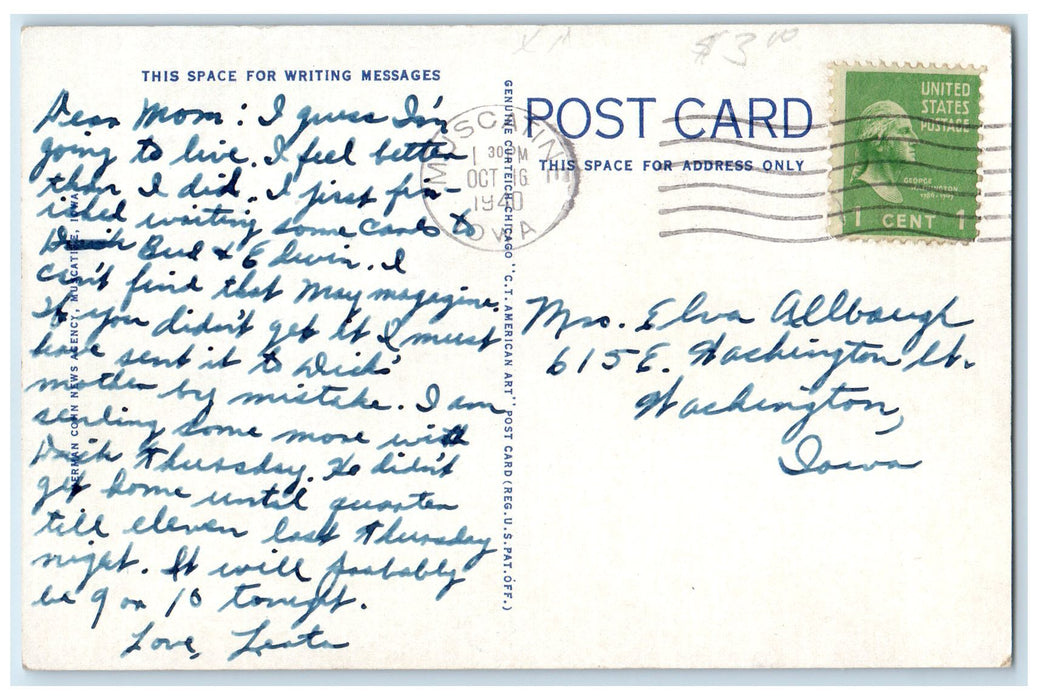 $3.00
THIS SPACE FOR WRITING MESSAGES
Dear Mom: I guess I'm
going to live. I feel better
than I did. I just fin-
ished writing some cards to
Bud & Edwin. I
can't find that May magazine.
If you didn't get it I must
have sent it to Dick's
mother by mistake. I am
sending some more with
Dick Thursday. He didn't
get home until quarter
till eleven last Thursday
night. It will probably
be 9 or 10 tonight.
Love, Leota
HERMAN COHN NEWS AGENCY, MUSCATINE, IOWA
GENUINE CURTEICH-CHICAGO "C.T. AMERICAN ART" POST CARD (REG. U.S. PAT. OFF.)
POST CARD
THIS SPACE FOR ADDRESS ONLY
MUSCATINE
1 30 PM
OCT 16
1940
IOWA
UNITED
STATES
POSTAGE
GEORGE
WASHINGTON
1789-1797
1 CENT 1
Mrs. Elva Allbaugh
615 E. Washington St.
Washington,
Iowa